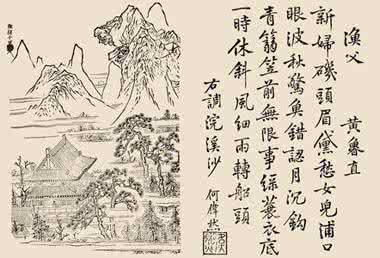 漁父 黃魯直
新婦磯頭眉黛愁女兒浦口
眼波秋驚魚錯認月沉鈎
青篛笠前無限事綠蓑衣底
一時休斜風細雨轉船頭
右調浣溪沙 何偉然